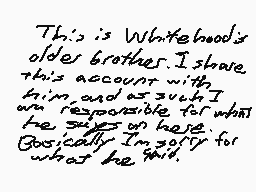 This is Whitehood's
older brother. I share
this account with
him, and as such I
am responsible for what
he says on here.
Basically I'm sorry for
what he said.